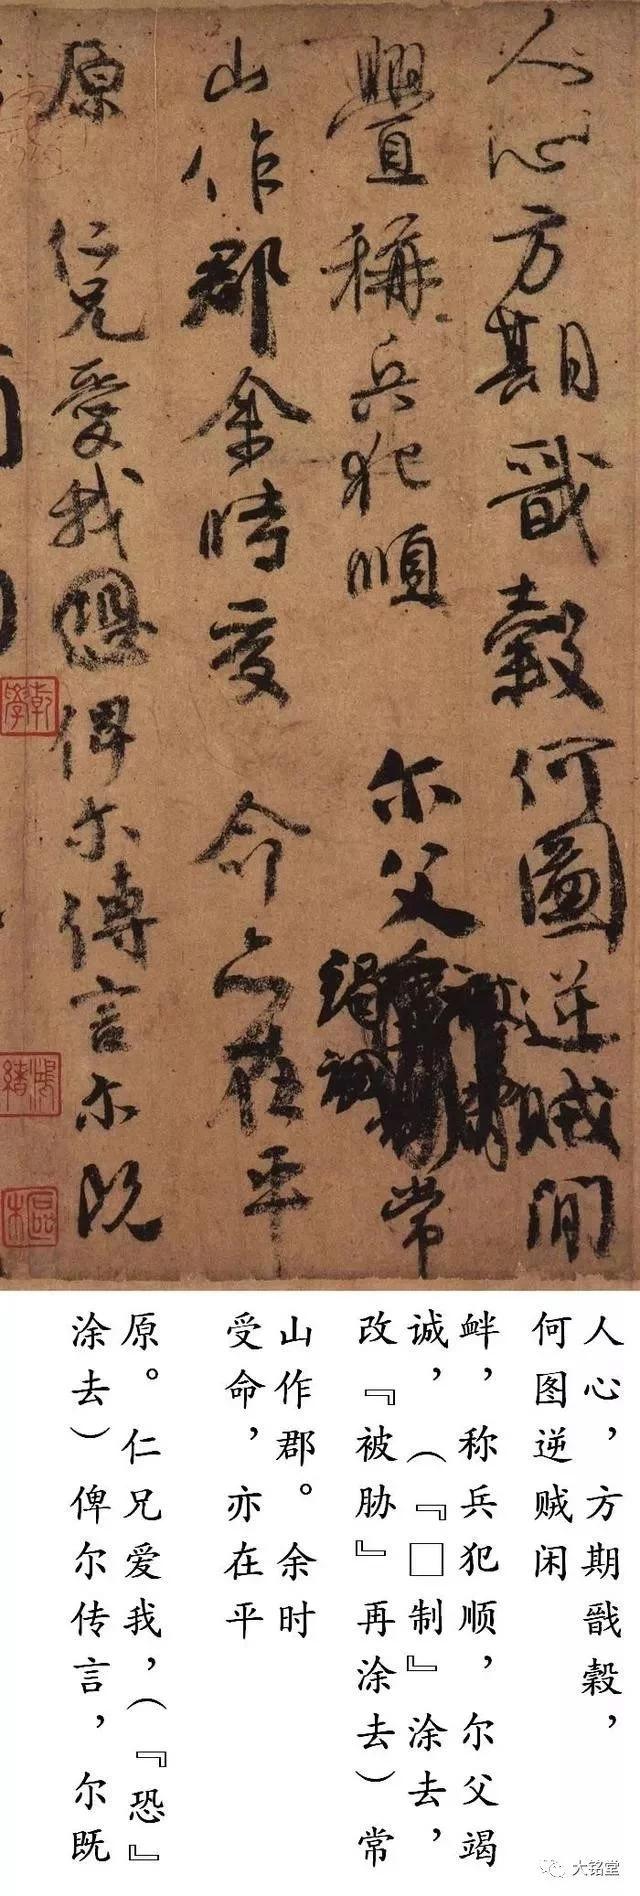 人心方期戩穀何圖逆賊間
釁稱兵犯順尔父竭誠常
山作郡余時受命亦在平
原仁兄愛我恐俾尔傳言尔既
乾學
鴻緒
人心，方期戬穀，
何图逆贼闲
衅，称兵犯顺，尔父竭
诚，（『□制』涂去，
改『被胁』再涂去）常
山作郡。余时
受命，亦在平
原。仁兄爱我，（『恐』
涂去）俾尔传言，尔既
大铭堂